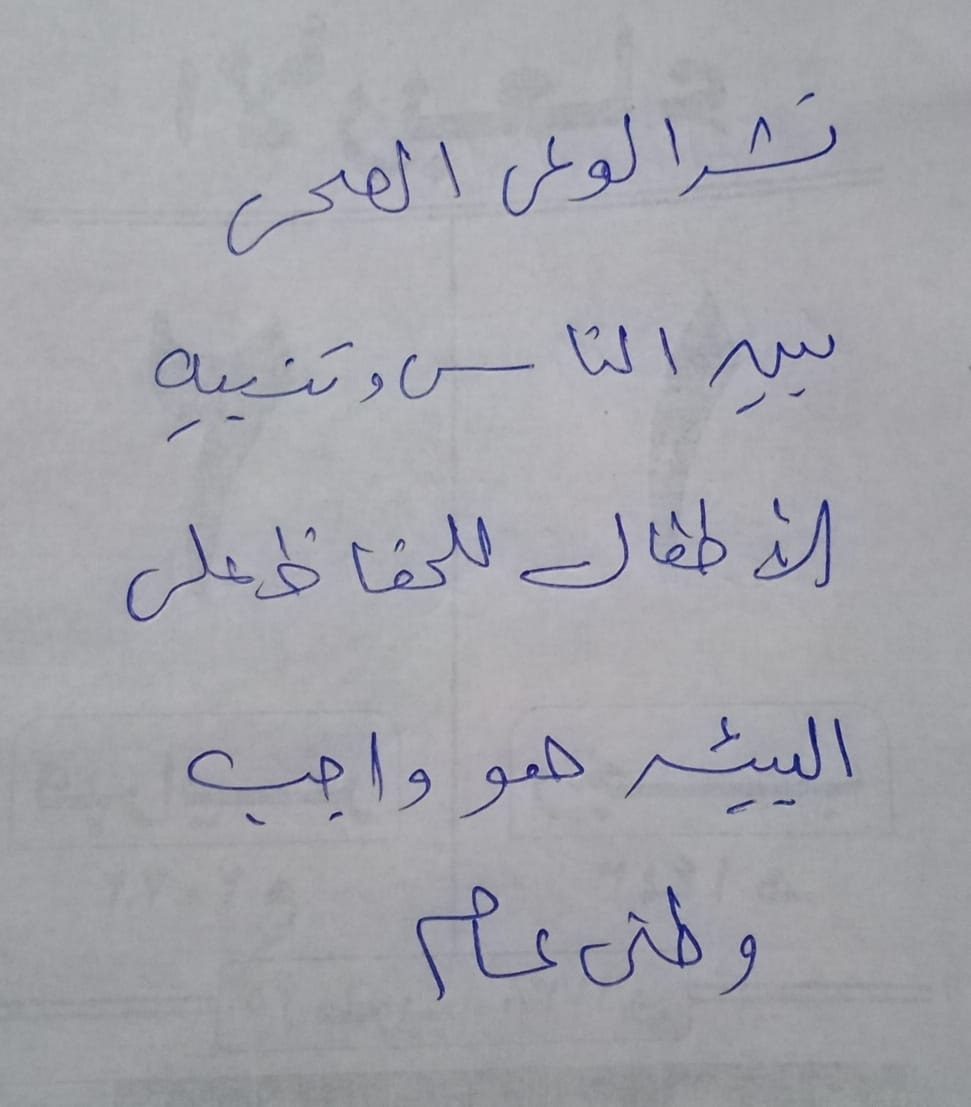 نشر الوعى الصحى
بين الناس وتنبيه
الأطفال للحفاظ على
البيئه هو واجب
وطنى عام